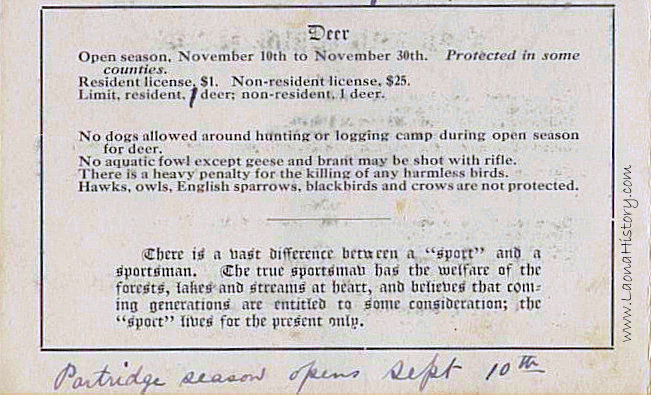 Deer
Open season, November 10th to November 30th. Protected in some
counties.
Resident license, $1. Non-resident license, $25.
Limit, resident, 1 deer; non-resident, 1 deer.
No dogs allowed around hunting or logging camp during open season
for deer.
No aquatic fowl except geese and brant may be shot with rifle.
There is a heavy penalty for the killing of any harmless birds.
Hawks, owls, English sparrows, blackbirds and crows are not protected.
There is a vast difference between a "sport" and a
sportsman. The true sportsman has the welfare of the
forests, lakes and streams at heart, and believes that com-
ing generations are entitled to some consideration; the
"sport" lives for the present only.
Partridge season opens Sept 10th
www.LaonaHistory.com